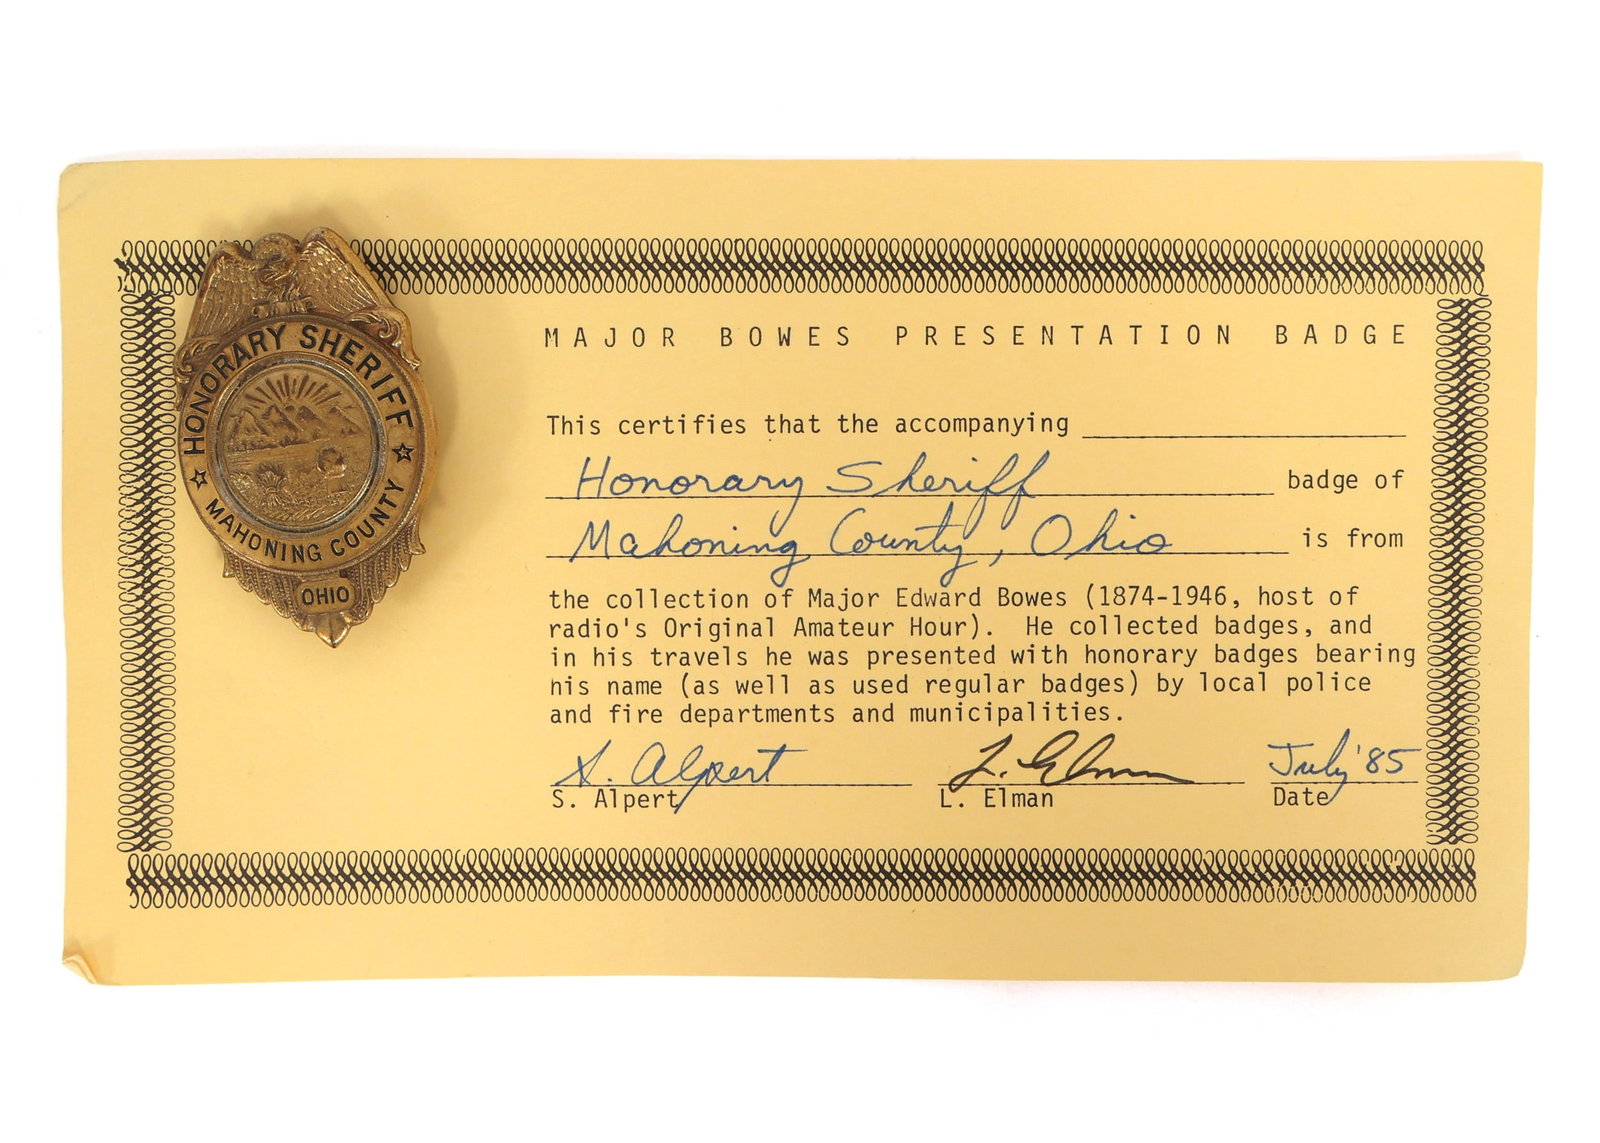 HONORARY SHERIFF
MAHONING COUNTY
OHIO
MAJOR BOWES PRESENTATION BADGE
This certifies that the accompanying
Honorary Sheriff badge of
Mahoning County, Ohio is from
the collection of Major Edward Bowes (1874-1946, host of
radio's Original Amateur Hour). He collected badges, and
in his travels he was presented with honorary badges bearing
his name (as well as used regular badges) by local police
and fire departments and municipalities.
S. Alpert L. Elman July '85
S. Alpert L. Elman Date